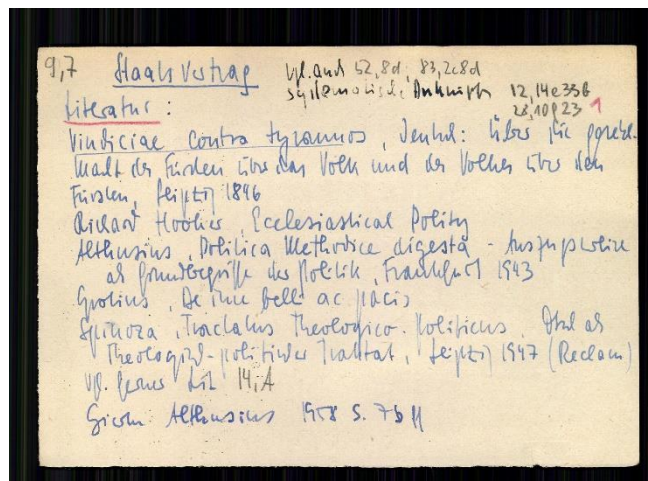 9,7 Staatsvertrag vgl. auch 52,8d; 83,2c8d
systematische Anknüpfg 12,14e33b
Literatur: 28,10g23 1
Vindiciae contra tyrannos, deutsch: Über die gesetzl.
Macht des Fürsten über das Volk und des Volkes über den
Fürsten, Leipzig 1846
Richard Hooker, Ecclesiastical Polity
Althusius, Politica Methodice digesta - Auszugsweise
als Grundbegriffe der Politik, Frankfurt 1943
Grotius, De iure belli ac pacis
Spinoza, Tractatus Theologico-Politicus, Dtsch als
Theologisch-politischer Traktat, Leipzig 1947 (Reclam)
vgl. ferner Lit 14,A
Althusius 1958 S. 7